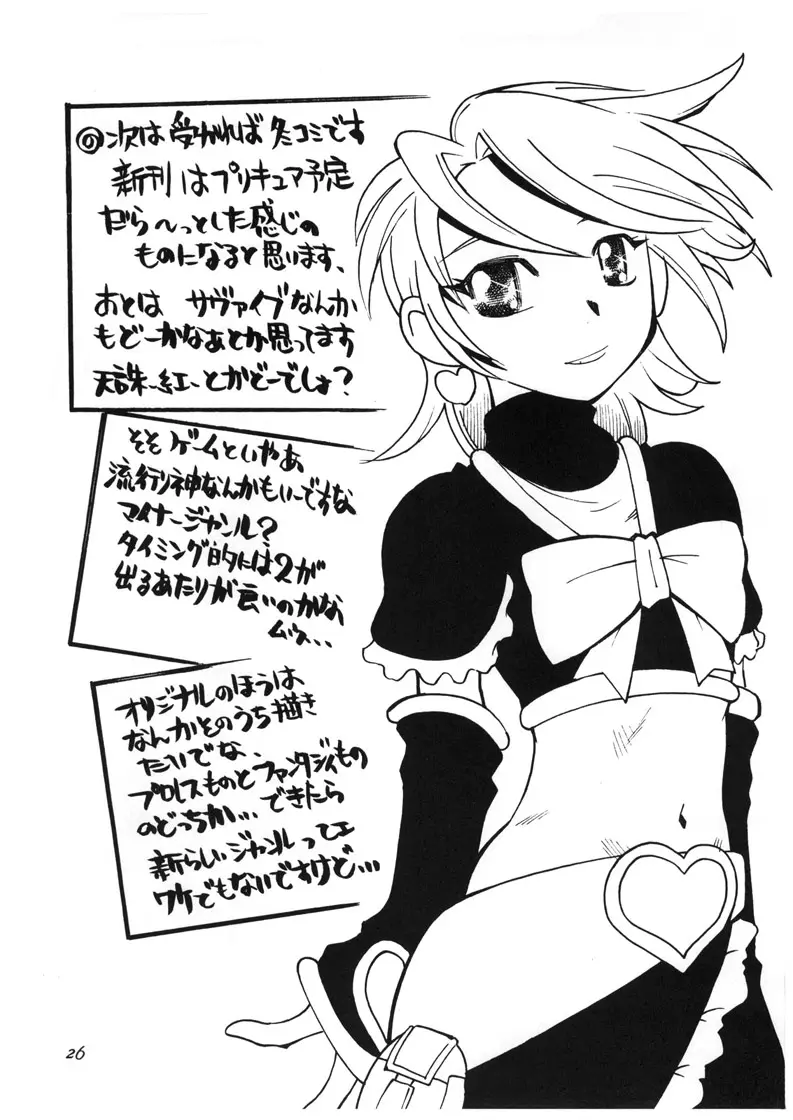 ◎次は受かれば冬コミです
新刊はプリキュア予定
だら〜っとした感じの
ものになると思います、
おとは サヴァイヴなんか
もどーかなぁとか思ってます
天誅-紅-とかどーでしょ?
そそ ゲームといやあ
流行り神なんかもいーですな
マイナージャンル?
タイミング的には2が
出るあたりが良いのかな
ムゥ...
オリジナルのほうは
なんかそのうち描き
たいでな、
プロレスものとファンタジィもの
のどっちか... できたら
新らしいジャンルってェ
ワケでもないですけど...
26